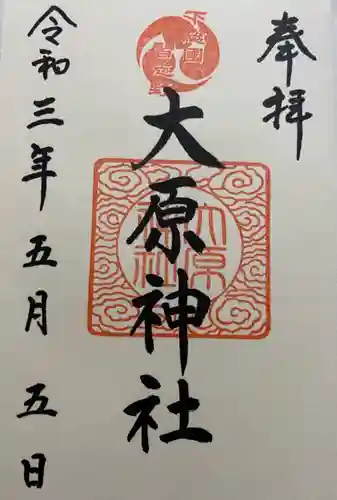 奉拝
下総國
大原神社
大原神社
令和三年五月五日